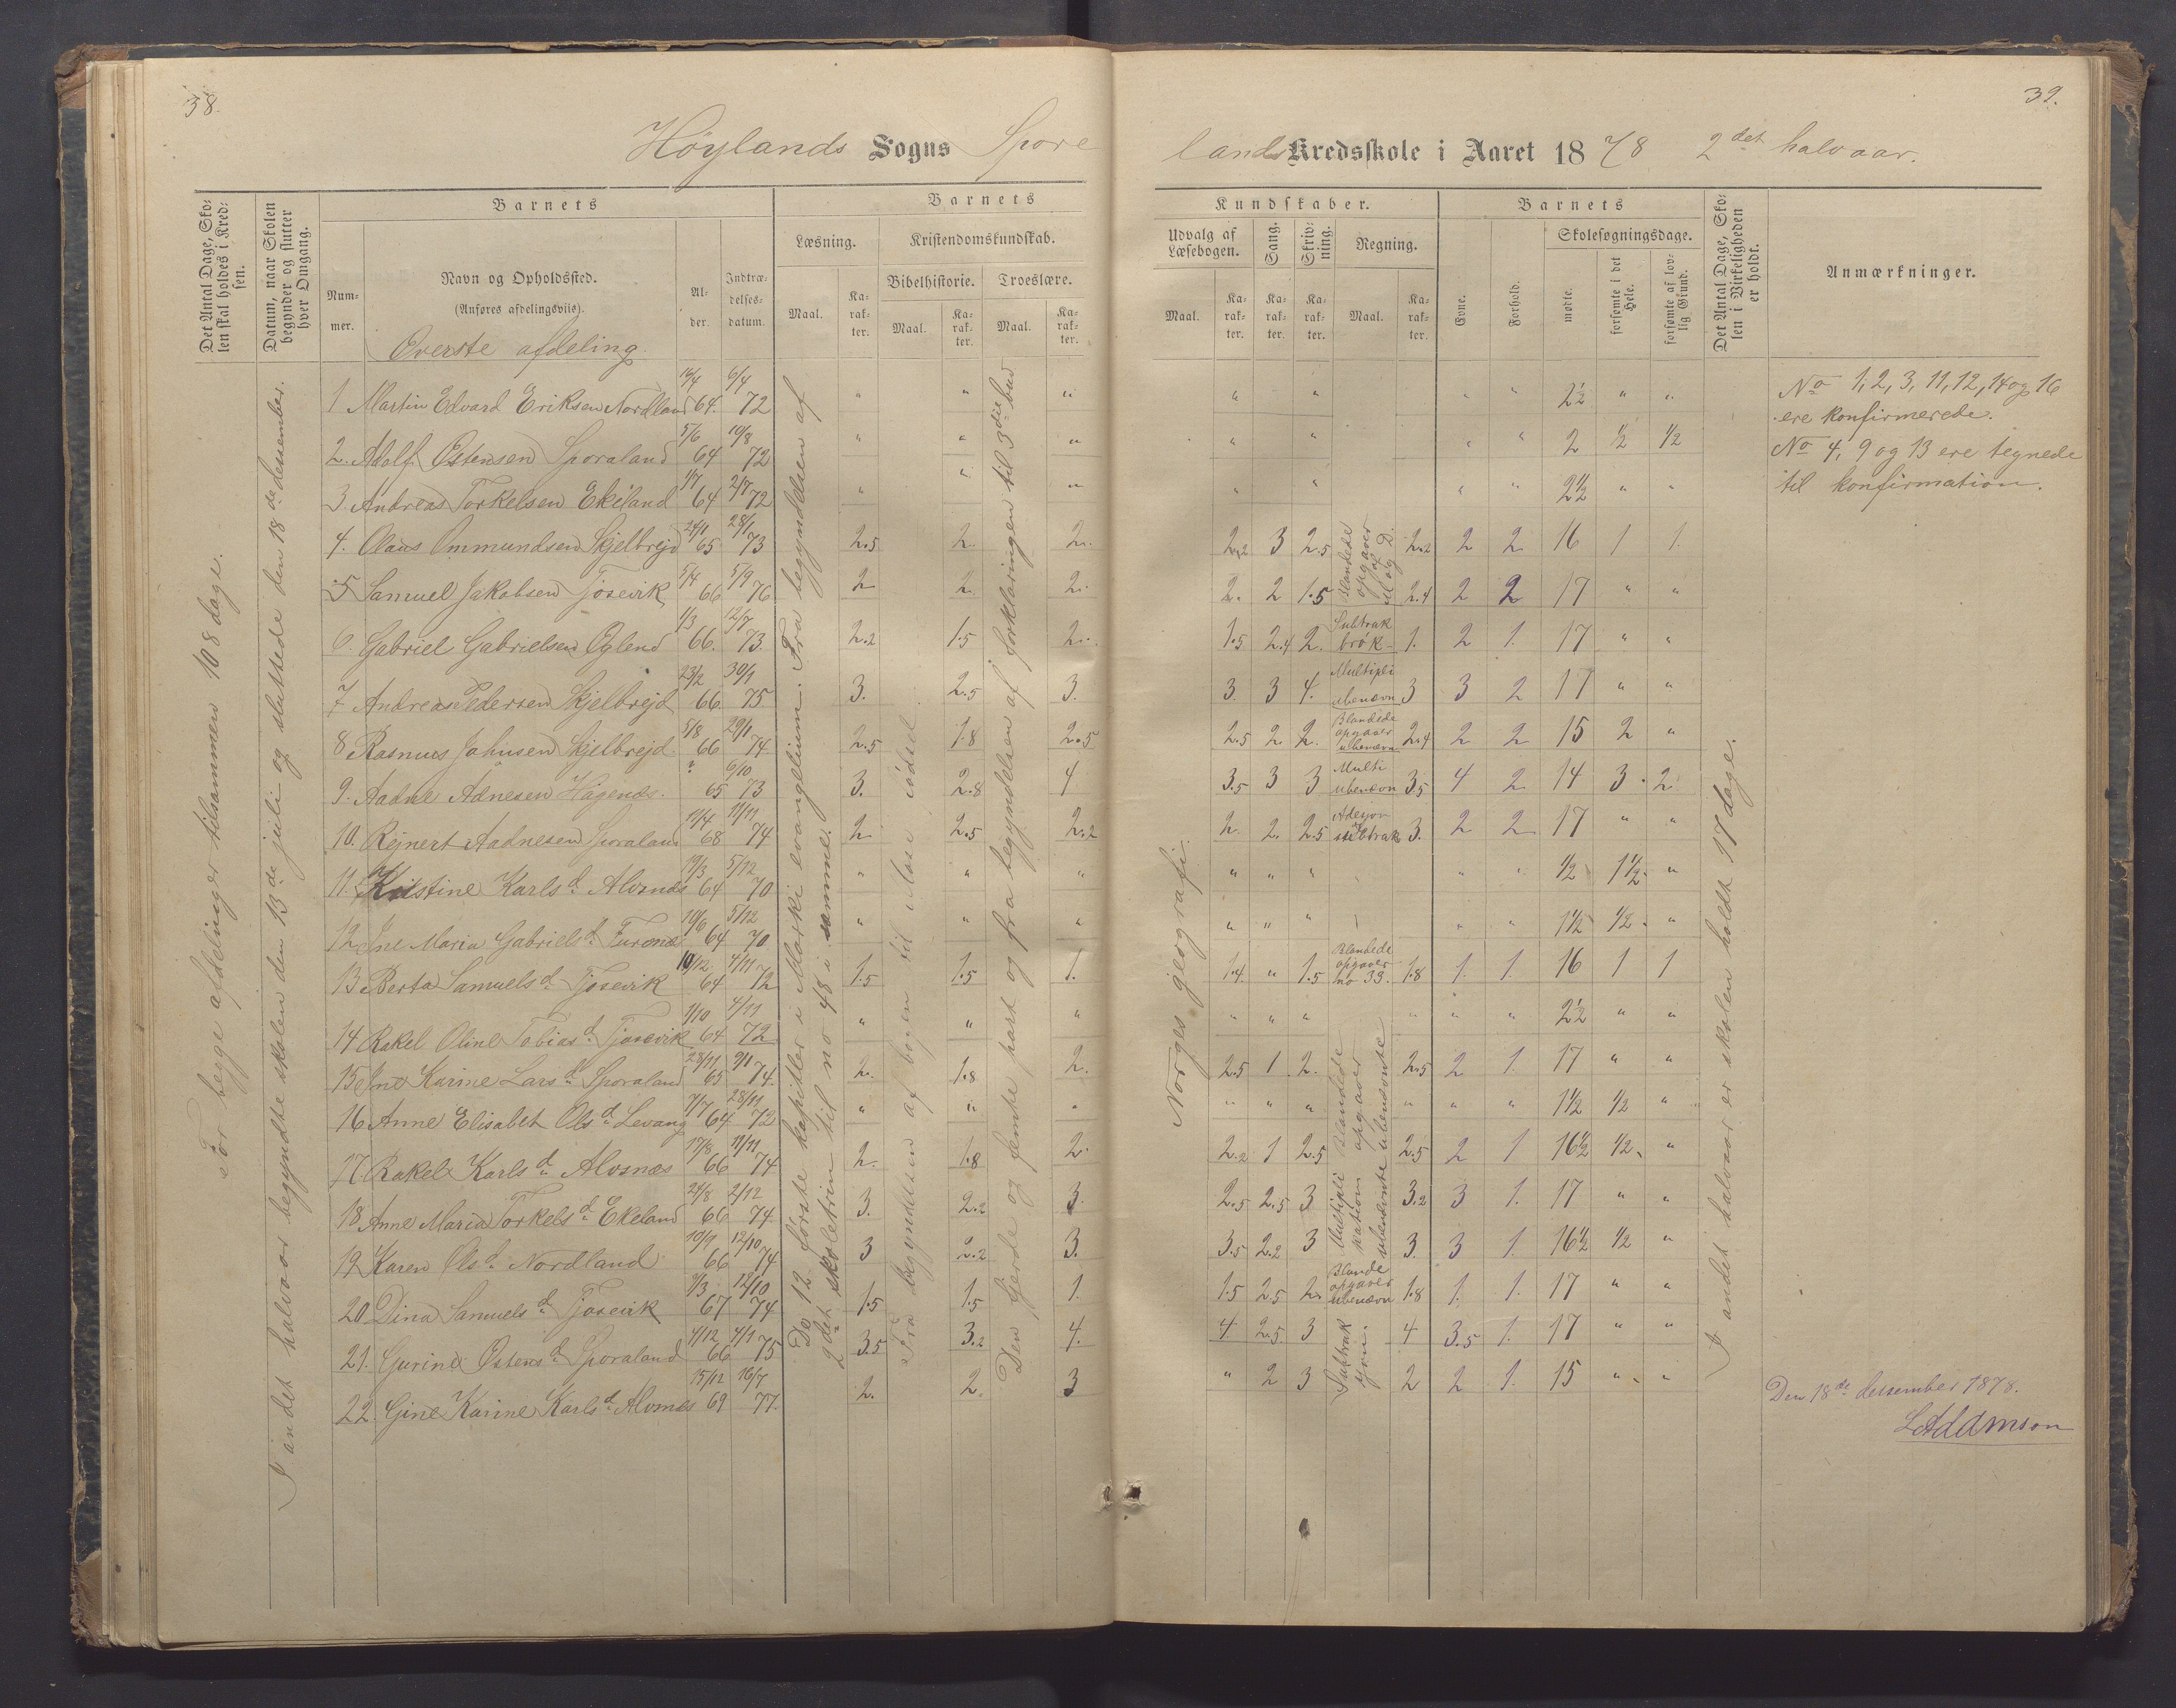 38.
39.
Höylands Sogns Spore
lands Kredsskole i Aaret 1878 2det halvaar.
Det Antal Dage, Skolen skal holdes i Kredsen.
Datum, naar Skolen begynder og slutter hver Omgang.
Barnets
Nummer.
Navn og Opholdssted.
(Anføres afdelingsviis).
Överste afdeling.
Alder.
Indtrædelsesdatum.
Barnets
Læsning.
Maal.
Karakter.
Kristendomskundskab.
Bibelhistorie.
Maal.
Karakter.
Troeslære.
Maal.
Karakter.
Kundskaber.
Udvalg af Læsebogen.
Maal.
Karakter.
Sang.
Karakter.
Skrivning.
Karakter.
Regning.
Maal.
Karakter.
Barnets
Evne.
Forhold.
Skolesøgningsdage.
mødte.
forsømte i det Hele.
forsømte af lovlig Grund.
Det Antal Dage, Skolen i Virkeligheden er holdt.
Anmærkninger.
For begge afdelinger tilsammen 108 dage.
I andet halvaar begyndte skolen den 13de juli og sluttede den 18de desember.
De 12 første kapitler i Marki evangelium. Fra begyndelsen af
2det skoletrin til no 48 i samme.
Fra begyndelsen af bogen til Mose fødsel
Den fjerde og femte part og fra begyndelsen af forklaringen til 3die bud
Norges geografi.
I andet halvaar er skolen holdt 17 dage.
1 Martin Edvard Eriksen Nordland 64. 6/4 72 " " " " " " " 2½ " "
2. Adolf Östensen Sporaland 5/6 64 10/8 72 " " " " " " " 2 ½ ½
3. Andreas Torkelsen Ekeland 1/7 64 2/7 72 " " " " " " " 2½ " "
4. Olaus Ommundsen Skjelbrejd 24/1 65 28/1 73 2.5 2. 2. 2.2 3 2.5 Blandede opgaver af M og D. 2.2 2 2 16 1 1.
5 Samuel Jakobsen Tjosevik 5/4 66 5/9 76 2 2. 2. 2. 2 1.5 2.4 2 2 17 " "
6. Gabriel Gabrielsen Oglend 1/3 66. 12/7 73. 2.2 1.5 2. 1.5 2.4 2. Subtrak brök 1. 2 1. 17 " "
7 Andreas Pedersen Skjelbrejd 23/2 66 30/9 75 3. 2.5 3. 3. 3 4. Multipli ubenævn 3 3 2 17 " "
8 Rasmus Johnsen Skjelbrejd. 5/8 66 29/1 74 2.5 1.8 2.5 2.5 2. 2. Blandede opgaver ubenævn 2.4 2 2 15 2 "
9. Aadne Adnesen Hagenæs. 65 6/10 73 3. 2.8 4 3.5 3 3 Multi ubenævn 3.5 4 2 14 3 2
10. Rejnert Aadnesen Sporaland 11/4 68 11/11 74 2. 2.5 2.2 2. 2. 2.5 Adesjon og subtrak 3. 2 2 17 " "
11. Kristine Karlsd. Alvsnæs 19/3 64 5/12 70 " " " " " " " " ½ 1½ "
12 Ine Maria Gabrielsd. Furenæs 10/6 64 5/12 70 " " " " " " " " 1½ ½ "
13 Berta Samuelsd. Tjosevik 10/12 64 4/11 72 1.5 1.5 1. 1.4 " 1.5 Blandede opgaver no 33. 1.8 1. 1. 16 1 1
14 Rakel Oline Tobiasd. Tjosevik 1/10 64 4/11 72 " " " " " " " " " 2½ " "
15 Ine Karine Larsd. Sporaland 28/11 65 9/1 74. 2. 1.8 2. 2.5 1 2. Blandede opgaver ubenævnte 2.5 2 1. 17 " "
16 Anne Elisabet Olsd. Levang 7/7 64 28/11 72 " " " " " " " " " 1½ ½ "
17. Rakel Karlsd. Alvsnæs 17/8 66 11/11 74 2. 1.8 2. 2.2 1 2.5 2.5 2 1 16½ ½ "
18 Anne Maria Torkelsd. Ekeland 24/8 66 2/12 74. 3. 2.2 3. 2.5 2.5 3 Multipli kation ubenævnte 3.2 3 1. 17 " "
19 Karen Olsd. Nordland 10/9 66 12/10 74 3 2.2 3. 3.5 2.2 3 3. 3 1. 16½ ½ "
20 Dina Samuelsd. Tjosevik 9/3 67 12/10 74 1.5 1.5 1. 1.5 2.5 2. Blande opgaver ubenævn 1.8 1. 1. 17 " "
21. Gurine Östensd. Sporaland 4/12 66 4/1 75 3.5 3.2 4. 4 2.5. 3 Subtrak sjon. 4 3.5 1. 17 " "
22. Gine Karine Karlsd. Alvnæs 15/12 69 16/7 77. 2. 2. 3 " 2 3 2 2 1. 15 " "
No 1, 2, 3, 11, 12, 14 og 16
ere konfirmerede.
No 4, 9 og 13 ere tegnede
til konfirmation.
Den 18de desember 1878.
L Addmson